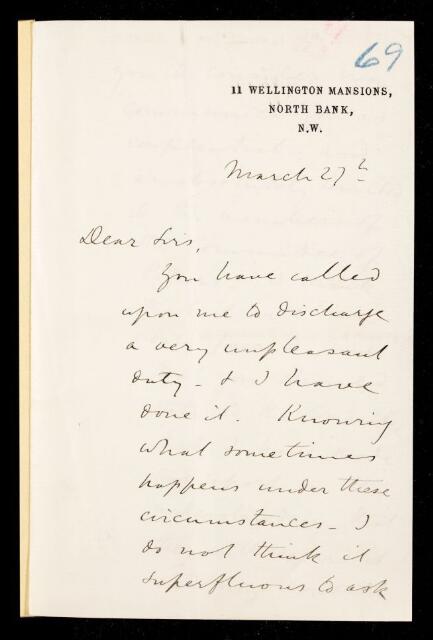 69
11 WELLINGTON MANSIONS,
NORTH BANK,
N.W.
March 27th
Dear Sirs,
You have called
upon me to discharge
a very unpleasant
duty - & I have
done it. Knowing
what sometimes
happens under these
circumstances - I
do not think it
superfluous to ask